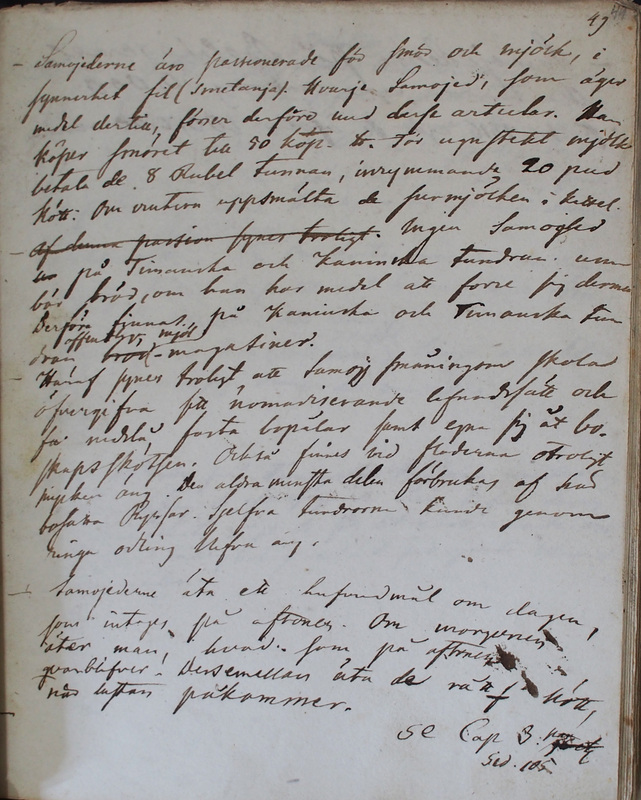 49
– Samojederne äro passionerade för smör och mjölk, i
synnerhet fil (Smetanja). Hvarje Samojed, som äger
medel dertill, förser derföre med dessa artiklar. Man
köper smöret till 50 kop. För ugnstekt mjölk
betala de 8 Rubel tunnan, inrymmande 20 pud
kött. Om vintern uppsmälta de surmjölken i kittel.
– Af denna passion synes troligt. Ingen Samojed
på Timanska och Kaninska tundran umbär
bröd, om han har medel att förse sig dermed
Derföre finnas på Kaninska och Timanska tun
offentliga mjöl
dran bröd-magasiner.
– Häraf synes troligt att Samoj småningom skola
öfvergifva sitt nomadiserande lefnadssätt och
fasta bopålar samt egna sig åt bo-
skapsskötsel. Också finnes vid floderna otroligt
mycken äng. Den aldraminsta delen förbrukas af här
bosatta Ryssar. Sjelfva tundrorna kunde genom
ringa odling blifva äng.
– Samojederne äta ett hufvudmål om dagen,
som intages på aftonen. Om morgonen
äter man, hvad som på aftonen
qvarblifver. Dessemellan äta de rått kött,
när lusten påkommer.
Se Cap 3.
Sid. 105